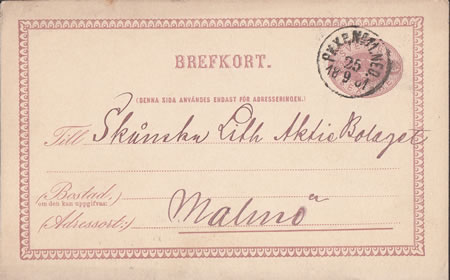 BREFKORT.
PKXP.Nº11.NED
25
18 9 81
(DENNA SIDA ANVÄNDES ENDAST FÖR ADRESSERINGEN.)
Till Skånska Lith Aktie Bolaget
(Bostad,
om den kan uppgifvas:)
(Adressort:) Malmö